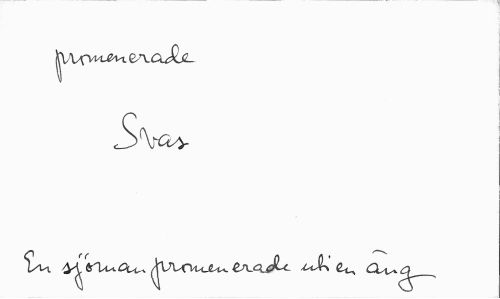 promenerade
Svas
En sjöman promenerade uti en äng